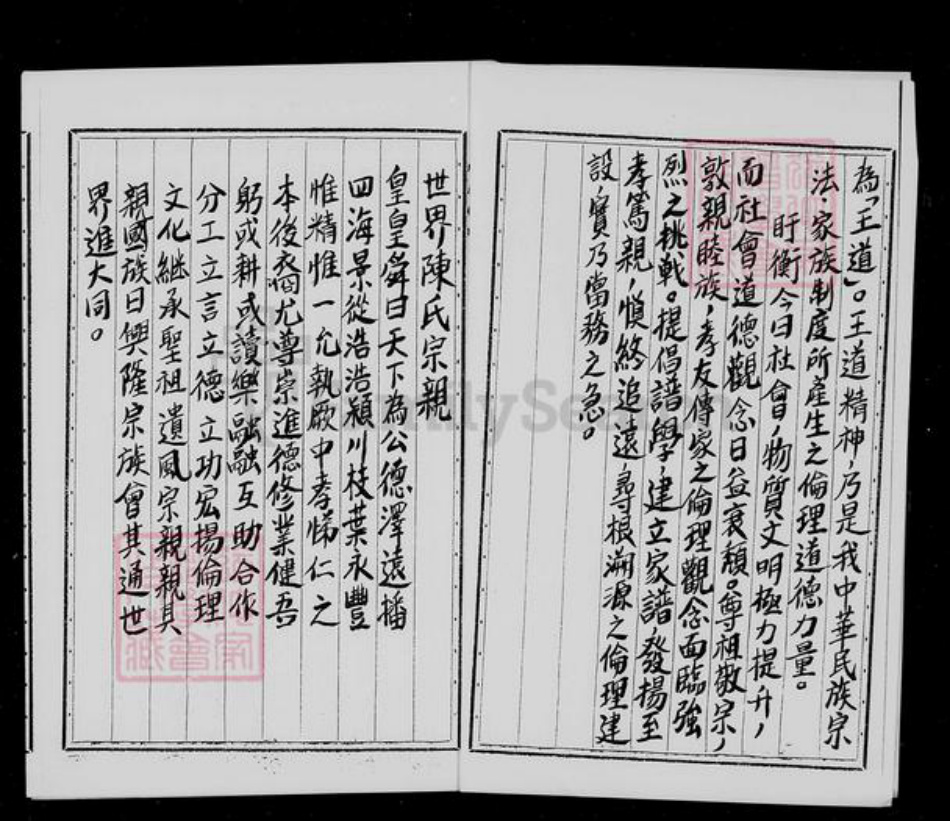 為「王道」。王道精神，乃是我中華民族宗
法、家族制度所產生之倫理道德力量。
盱衡今日社會，物質文明極力提升，
而社會道德觀念日益衰頹。尊祖敬宗，
敦親睦族，孝友傳家之倫理觀念面臨強
烈之挑戰。提倡譜學，建立家譜，發揚至
孝篤親，慎終追遠，尋根溯源之倫理建
設，實乃當務之急。
世界陳氏宗親
皇皇舜曰天下為公德澤遠播
四海景從浩浩潁川枝葉永豐
惟精惟一允執厥中孝悌仁之
本後裔尤尊崇進德修業健吾
躬或耕或讀樂融融互助合作
分工立言立德立功宏揚倫理
文化繼承聖祖遺風宗親親其
親國族日興隆宗族會其通世
界進大同。
FamilySearch